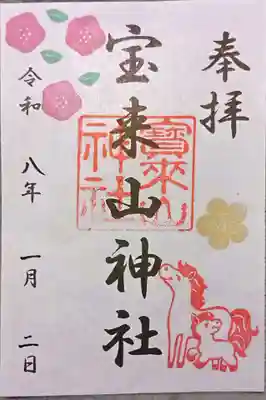 奉拝
宝来山神社
寶來山
神社
令和 八年 一月 二日